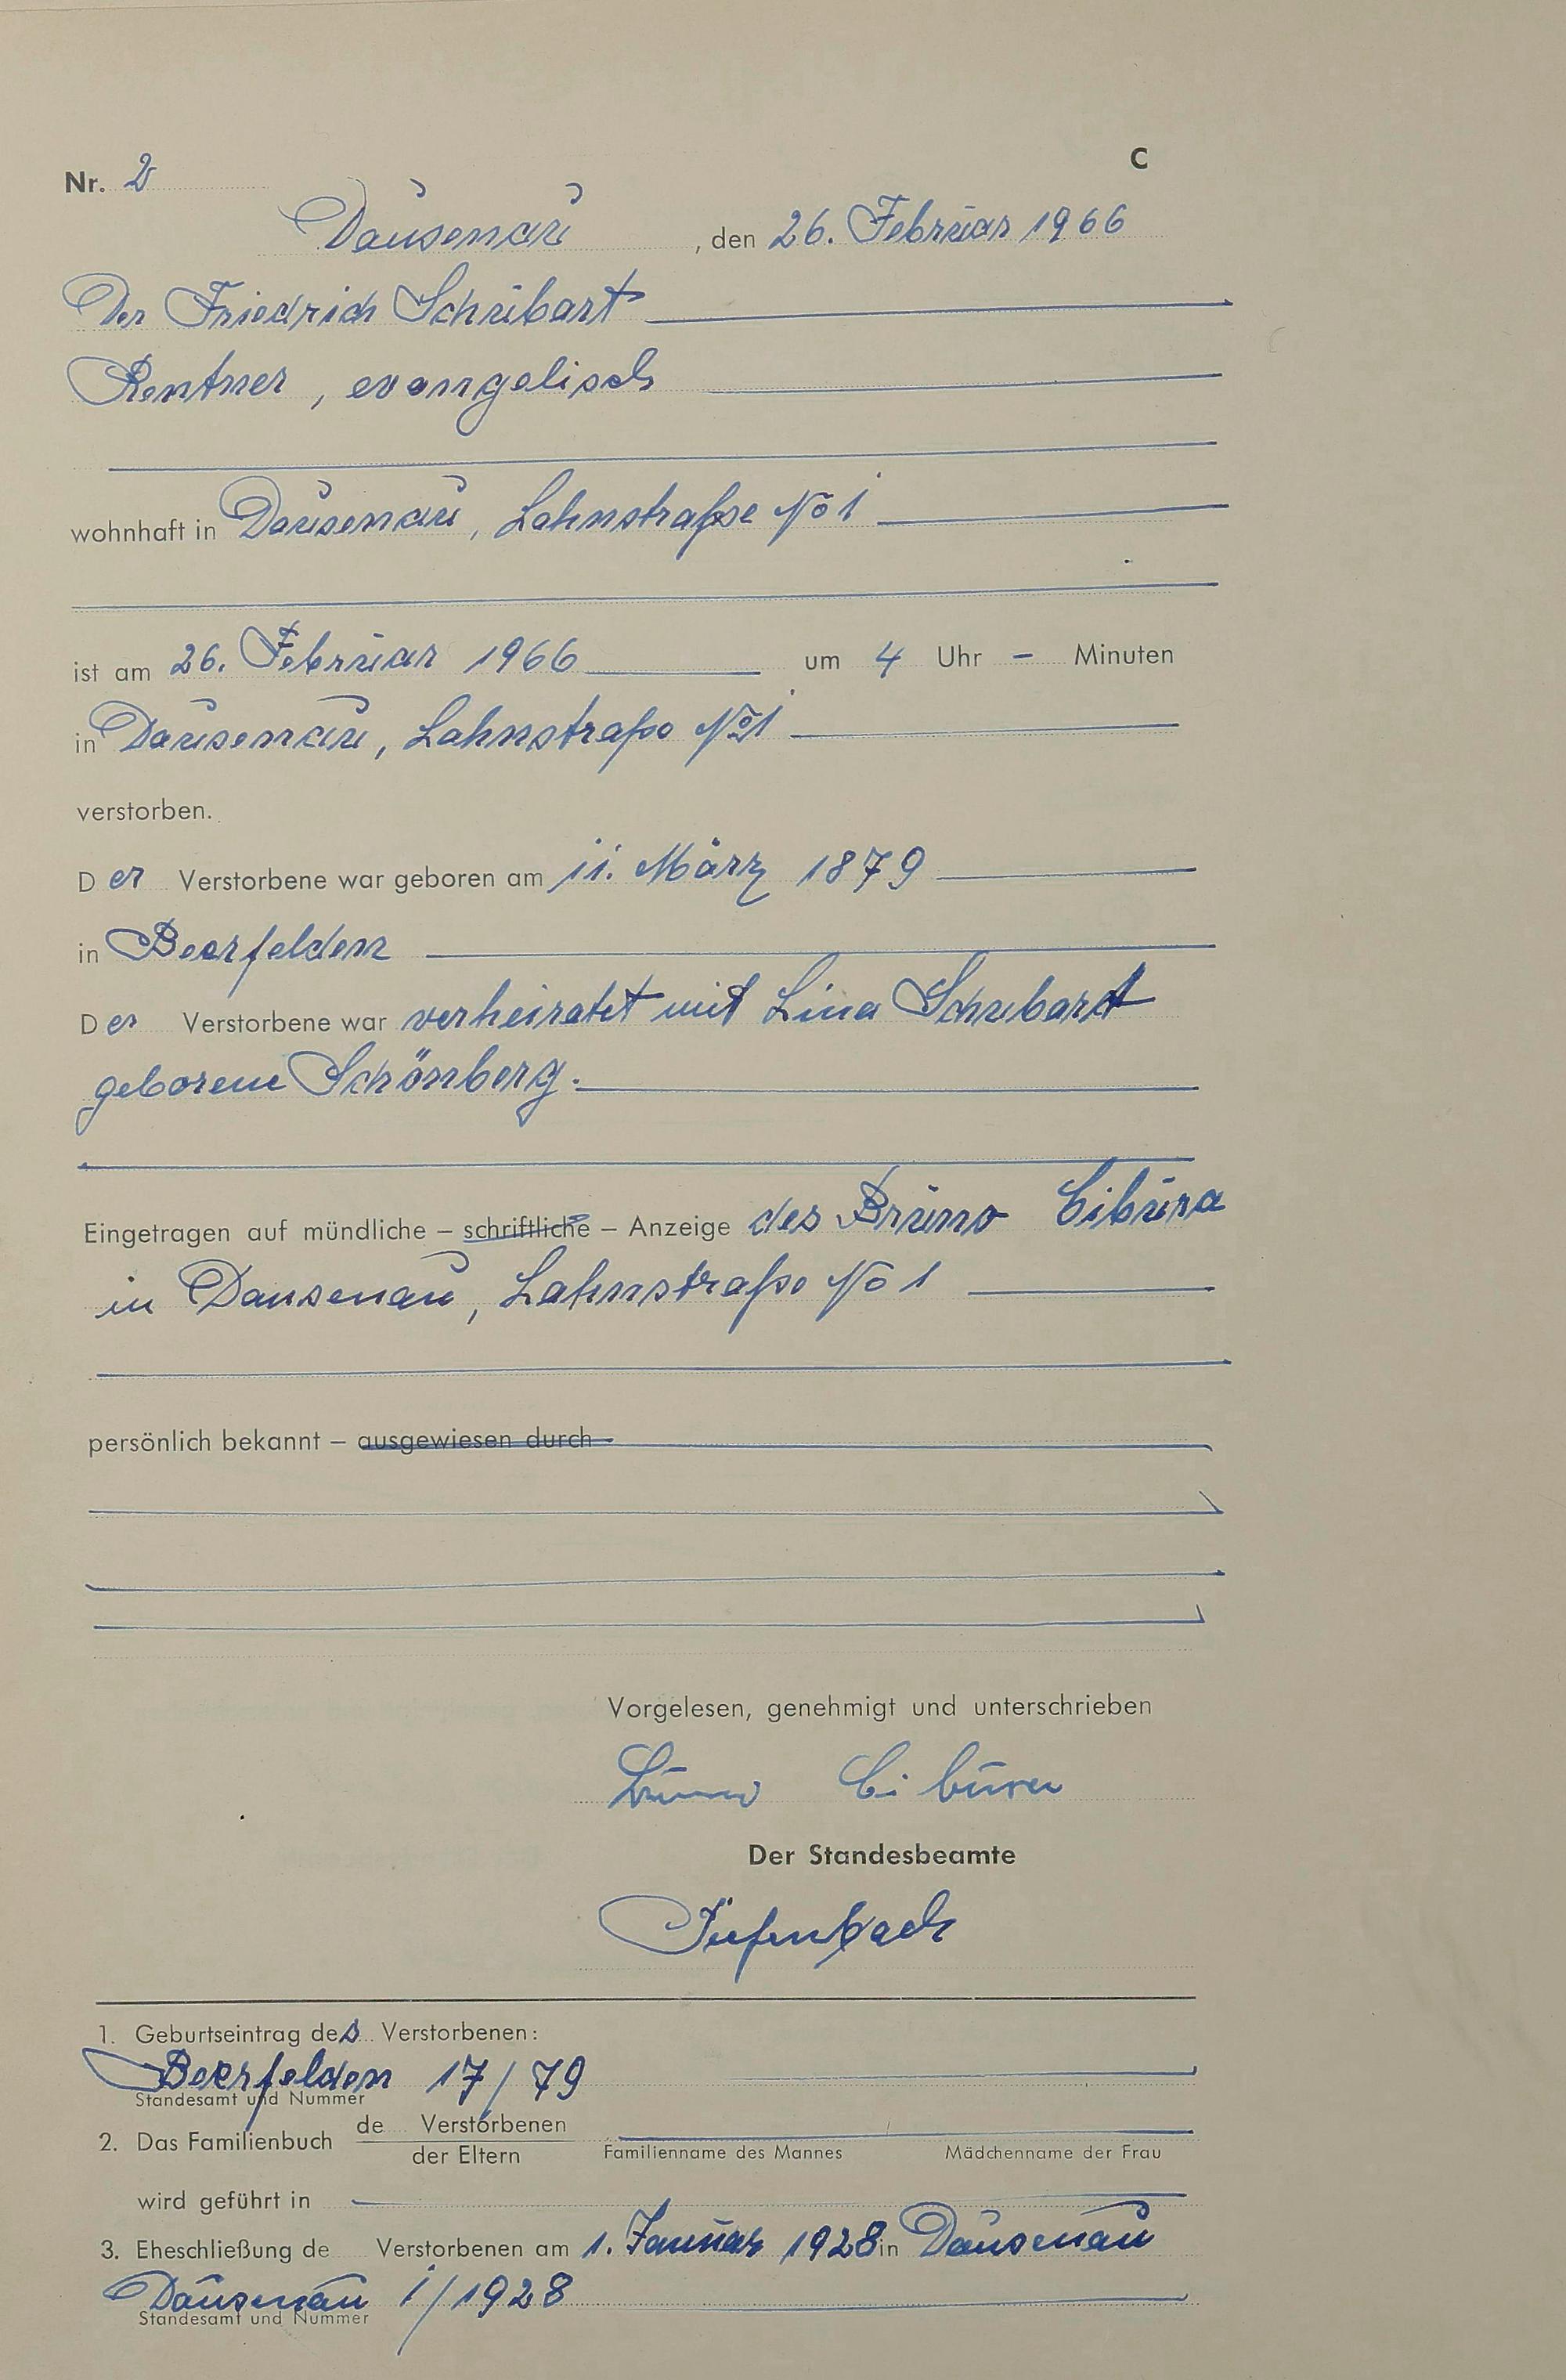 Nr. 2
C
Dausenau, den 26. Februar 1966
Der Friedrich Schubart
Rentner, evangelisch
wohnhaft in Dausenau, Lahnstraße No 1
ist am 26. Februar 1966 um 4 Uhr – Minuten
in Dausenau, Lahnstraße No 1
verstorben.
Der Verstorbene war geboren am 11. März 1879
in Beerfelden
Der Verstorbene war verheiratet mit Lina Schubart
geborene Schönberg.
Eingetragen auf mündliche – schriftliche – Anzeige des Bruno Cibura
in Dausenau, Lahnstraße No 1
persönlich bekannt – ausgewiesen durch
Vorgelesen, genehmigt und unterschrieben
Bruno Cibura
Der Standesbeamte
Tiefenbach
1. Geburtseintrag des Verstorbenen:
Beerfelden 17/79
Standesamt und Nummer
2. Das Familienbuch de Verstorbenen
der Eltern Familienname des Mannes Mädchenname der Frau
wird geführt in
3. Eheschließung de Verstorbenen am 1. Januar 1928 in Dausenau
Dausenau 1/1928
Standesamt und Nummer